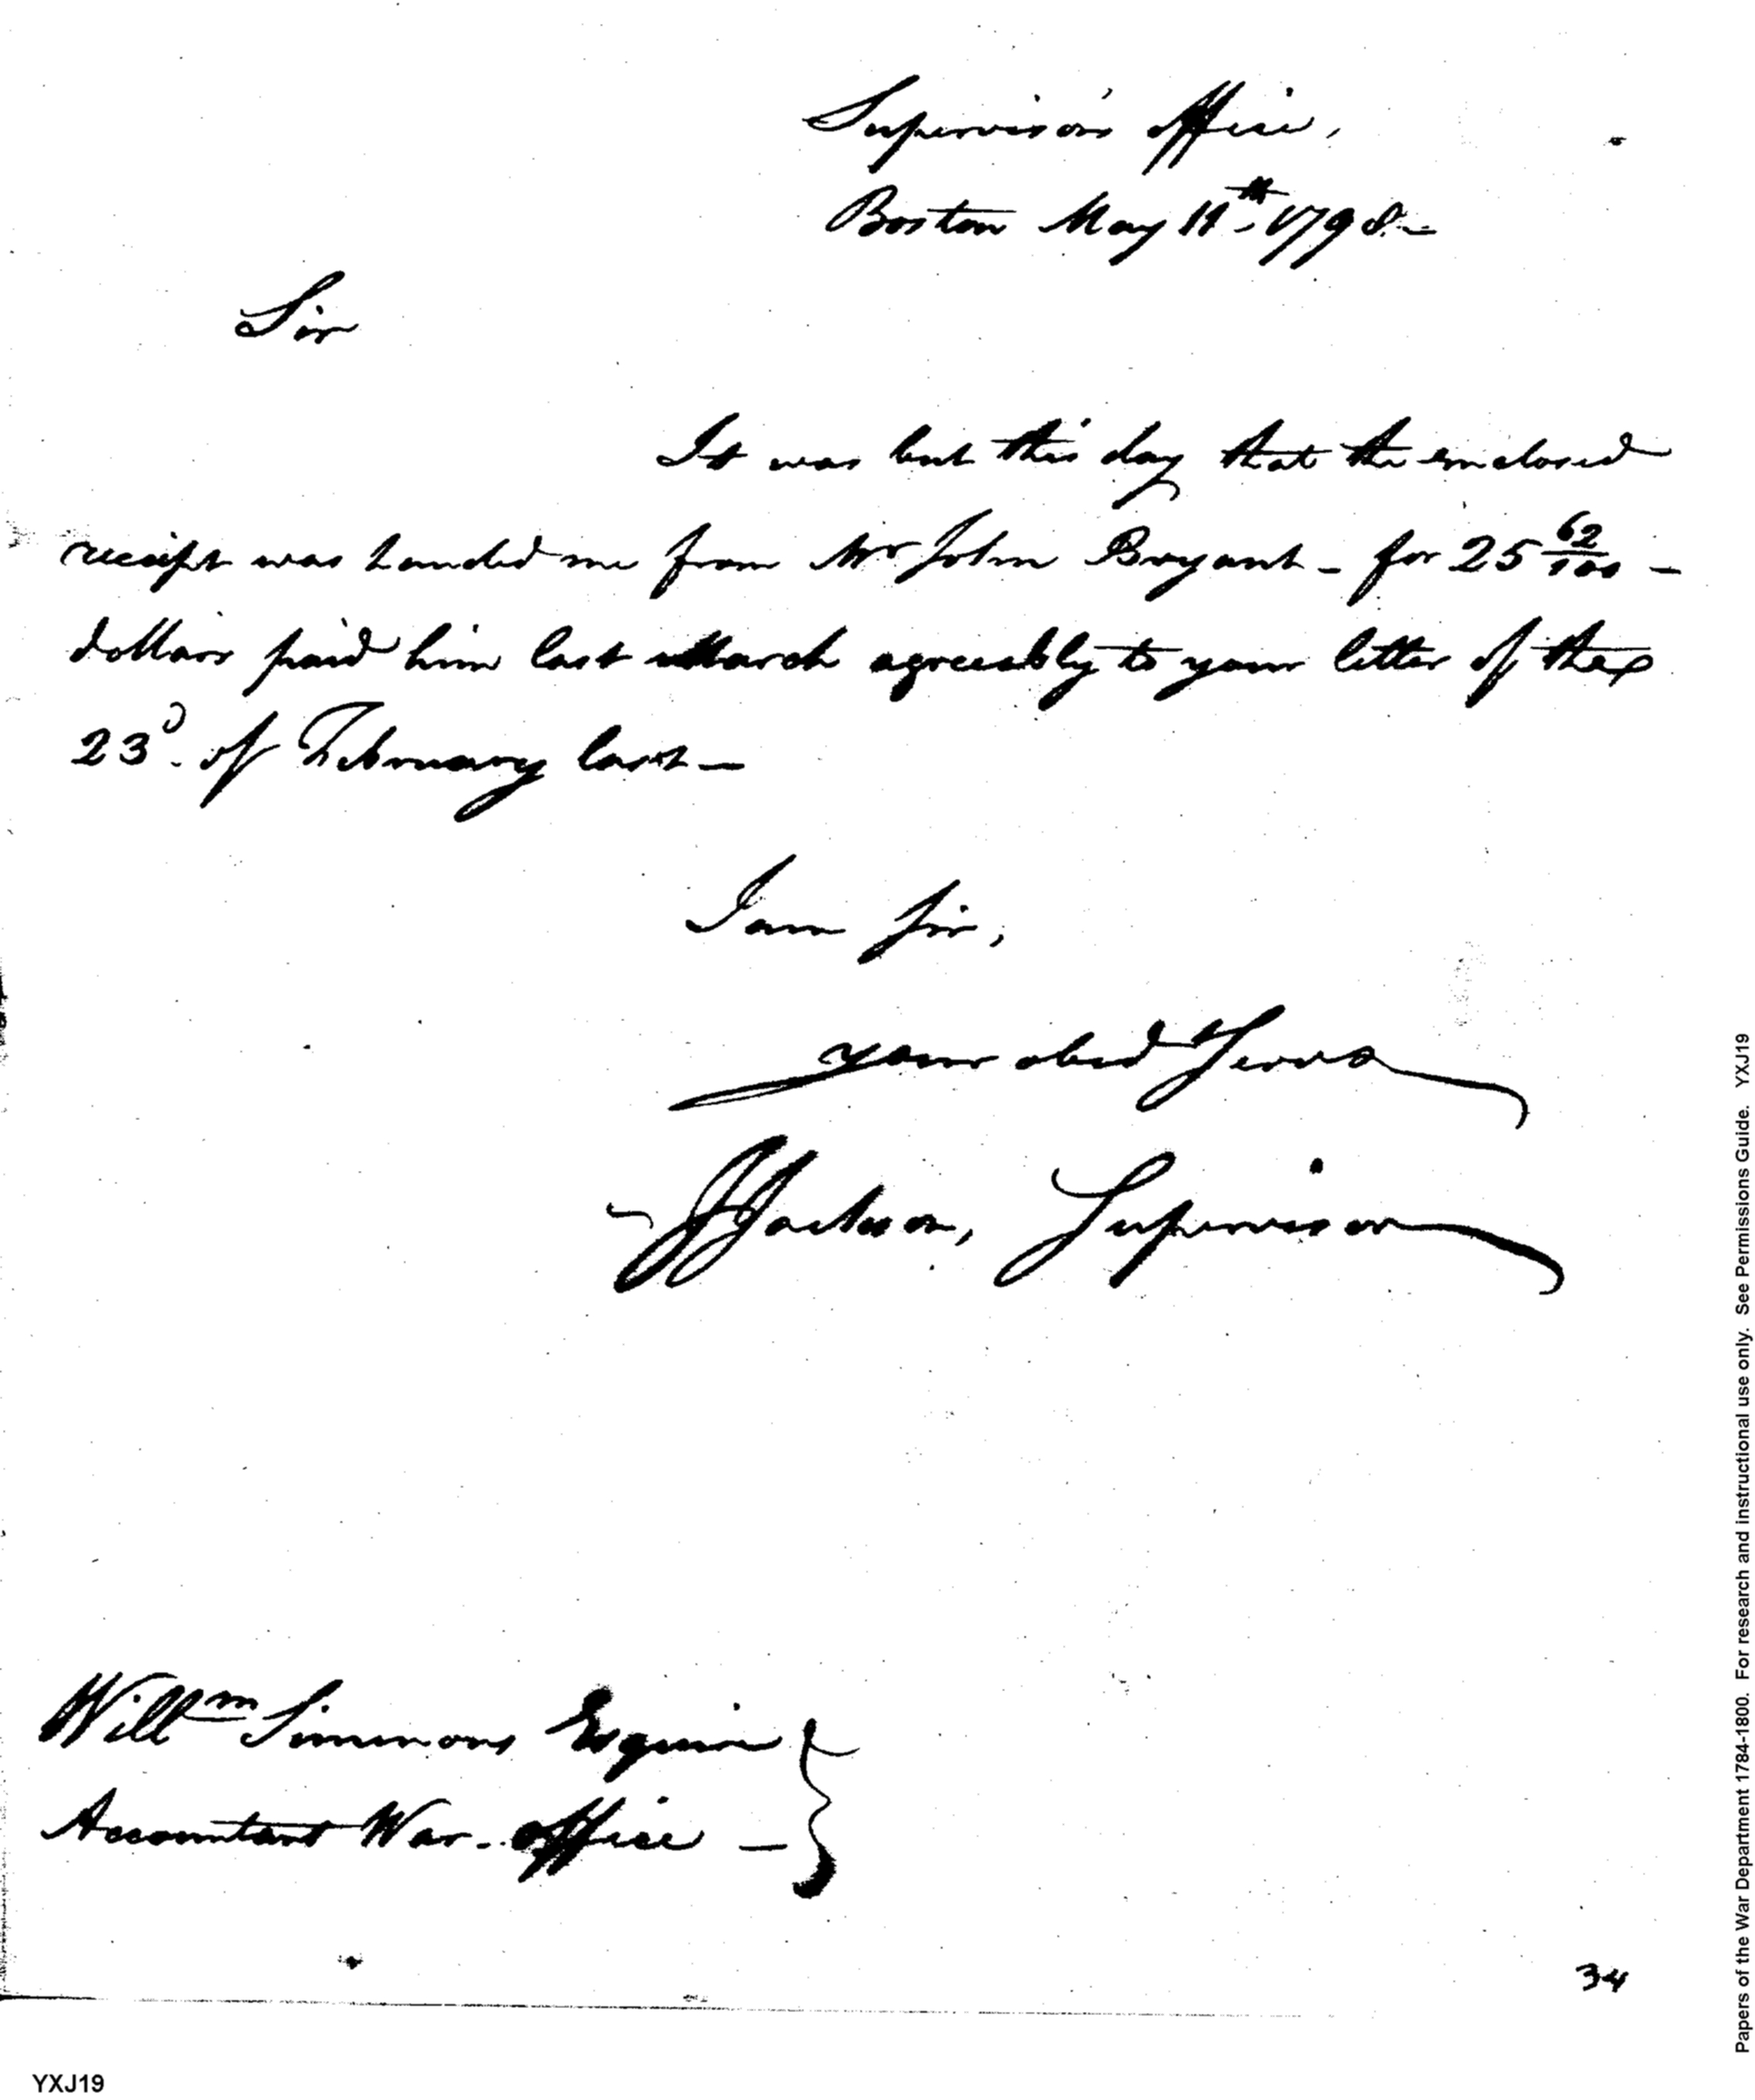 Supervisor's Office,
Boston May 11th. 1798.—
Sir
It was but this day that the enclosed
receipt was handed me from Mr John Bryant – for 25 62/100 –
dollars paid him last March agreeably to your letter of the
23d. of February last —
I am Sir,
your obed Servt
J Jackson, Supervisor
Willm Simmons Esquire
Accountant War-Office —
34
YXJ19
Papers of the War Department 1784-1800. For research and instructional use only. See Permissions Guide. YXJ19